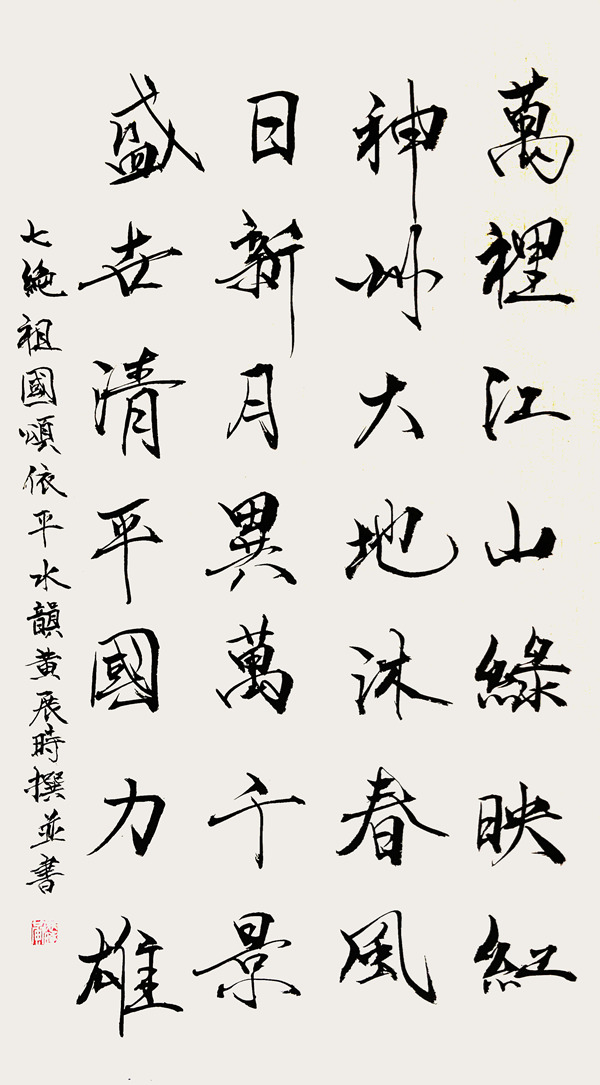 萬裡江山綠映紅
神州大地沐春風
日新月異萬千景
盛世清平國力雄
七絶祖國頌依平水韻黃展時撰並書